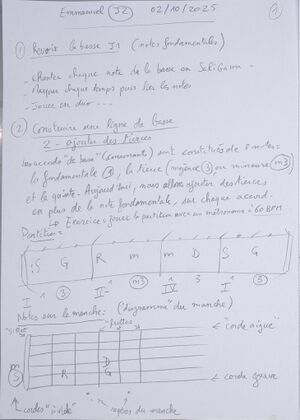 Emmanuel J2 02/10/2025 1
① Revoir la basse J1 (notes fondamentales)
- Chanter chaque note de la basse en
- chaque temps puis lier les notes
- Jouer en duo ...
② Construire une ligne de basse
2 - ajouter des tierces
Les accords "de base" (consonants) sont constitués de 3 notes:
la fondamentale ①, la tierce (majeure ③ ou mineure m3)
et la quinte. Aujourd'hui, nous allons ajouter des tierces
en plus de la note fondamentale, sur chaque accord.
↳ Exercice: jouer la partition avec un métronome à 60 BPM
Partition:
|: S G | R m | m D | S G
1 ③ 1 m3 1 1 ③
I II- IV I
Notes sur le manche: (diagramme du manche)
frettes
← "corde aigue"
D
S R G ← corde grave
cordes "à vide" repères du manche